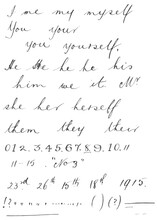 I me my myself
You your
you yourself.
He He he he his
him we it Mr
she her herself
them they their
0 1 2. 3. 4. 5. 6. 7. 8. 9. 10. 11
11-15 "No 3"
23rd 26th 15th 18th 1915.
( ) (?)